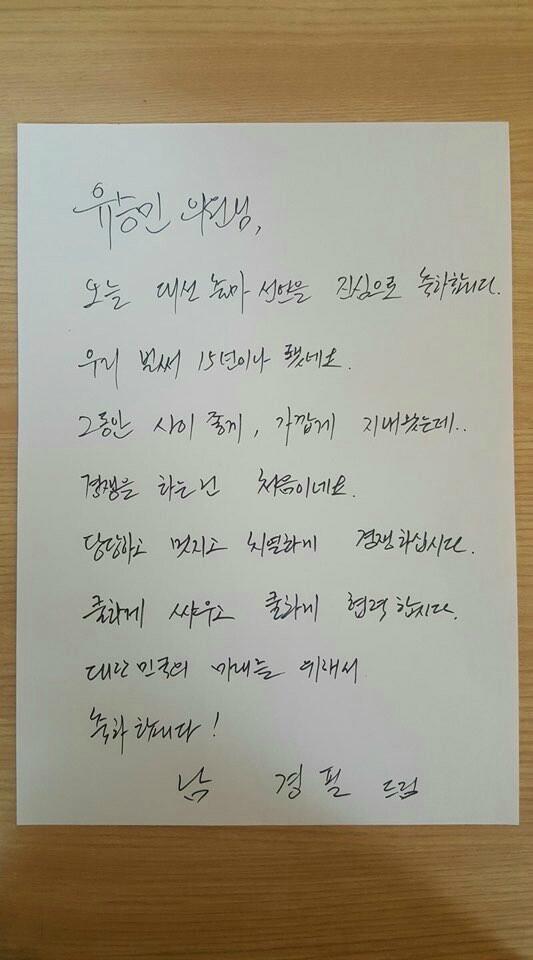 유승민 의원님,
오늘 대선 출마 선언을 진심으로 축하합니다.
우리 벌써 15년이나 됐네요.
그동안 사이 좋게, 가깝게 지내왔는데..
경쟁을 하는 건 처음이네요.
당당하고 멋지고 치열하게 경쟁하십시다.
쿨하게 싸우고 쿨하게 협력합시다.
대한민국의 미래를 위해서
축하합니다!
남 경 필 드림